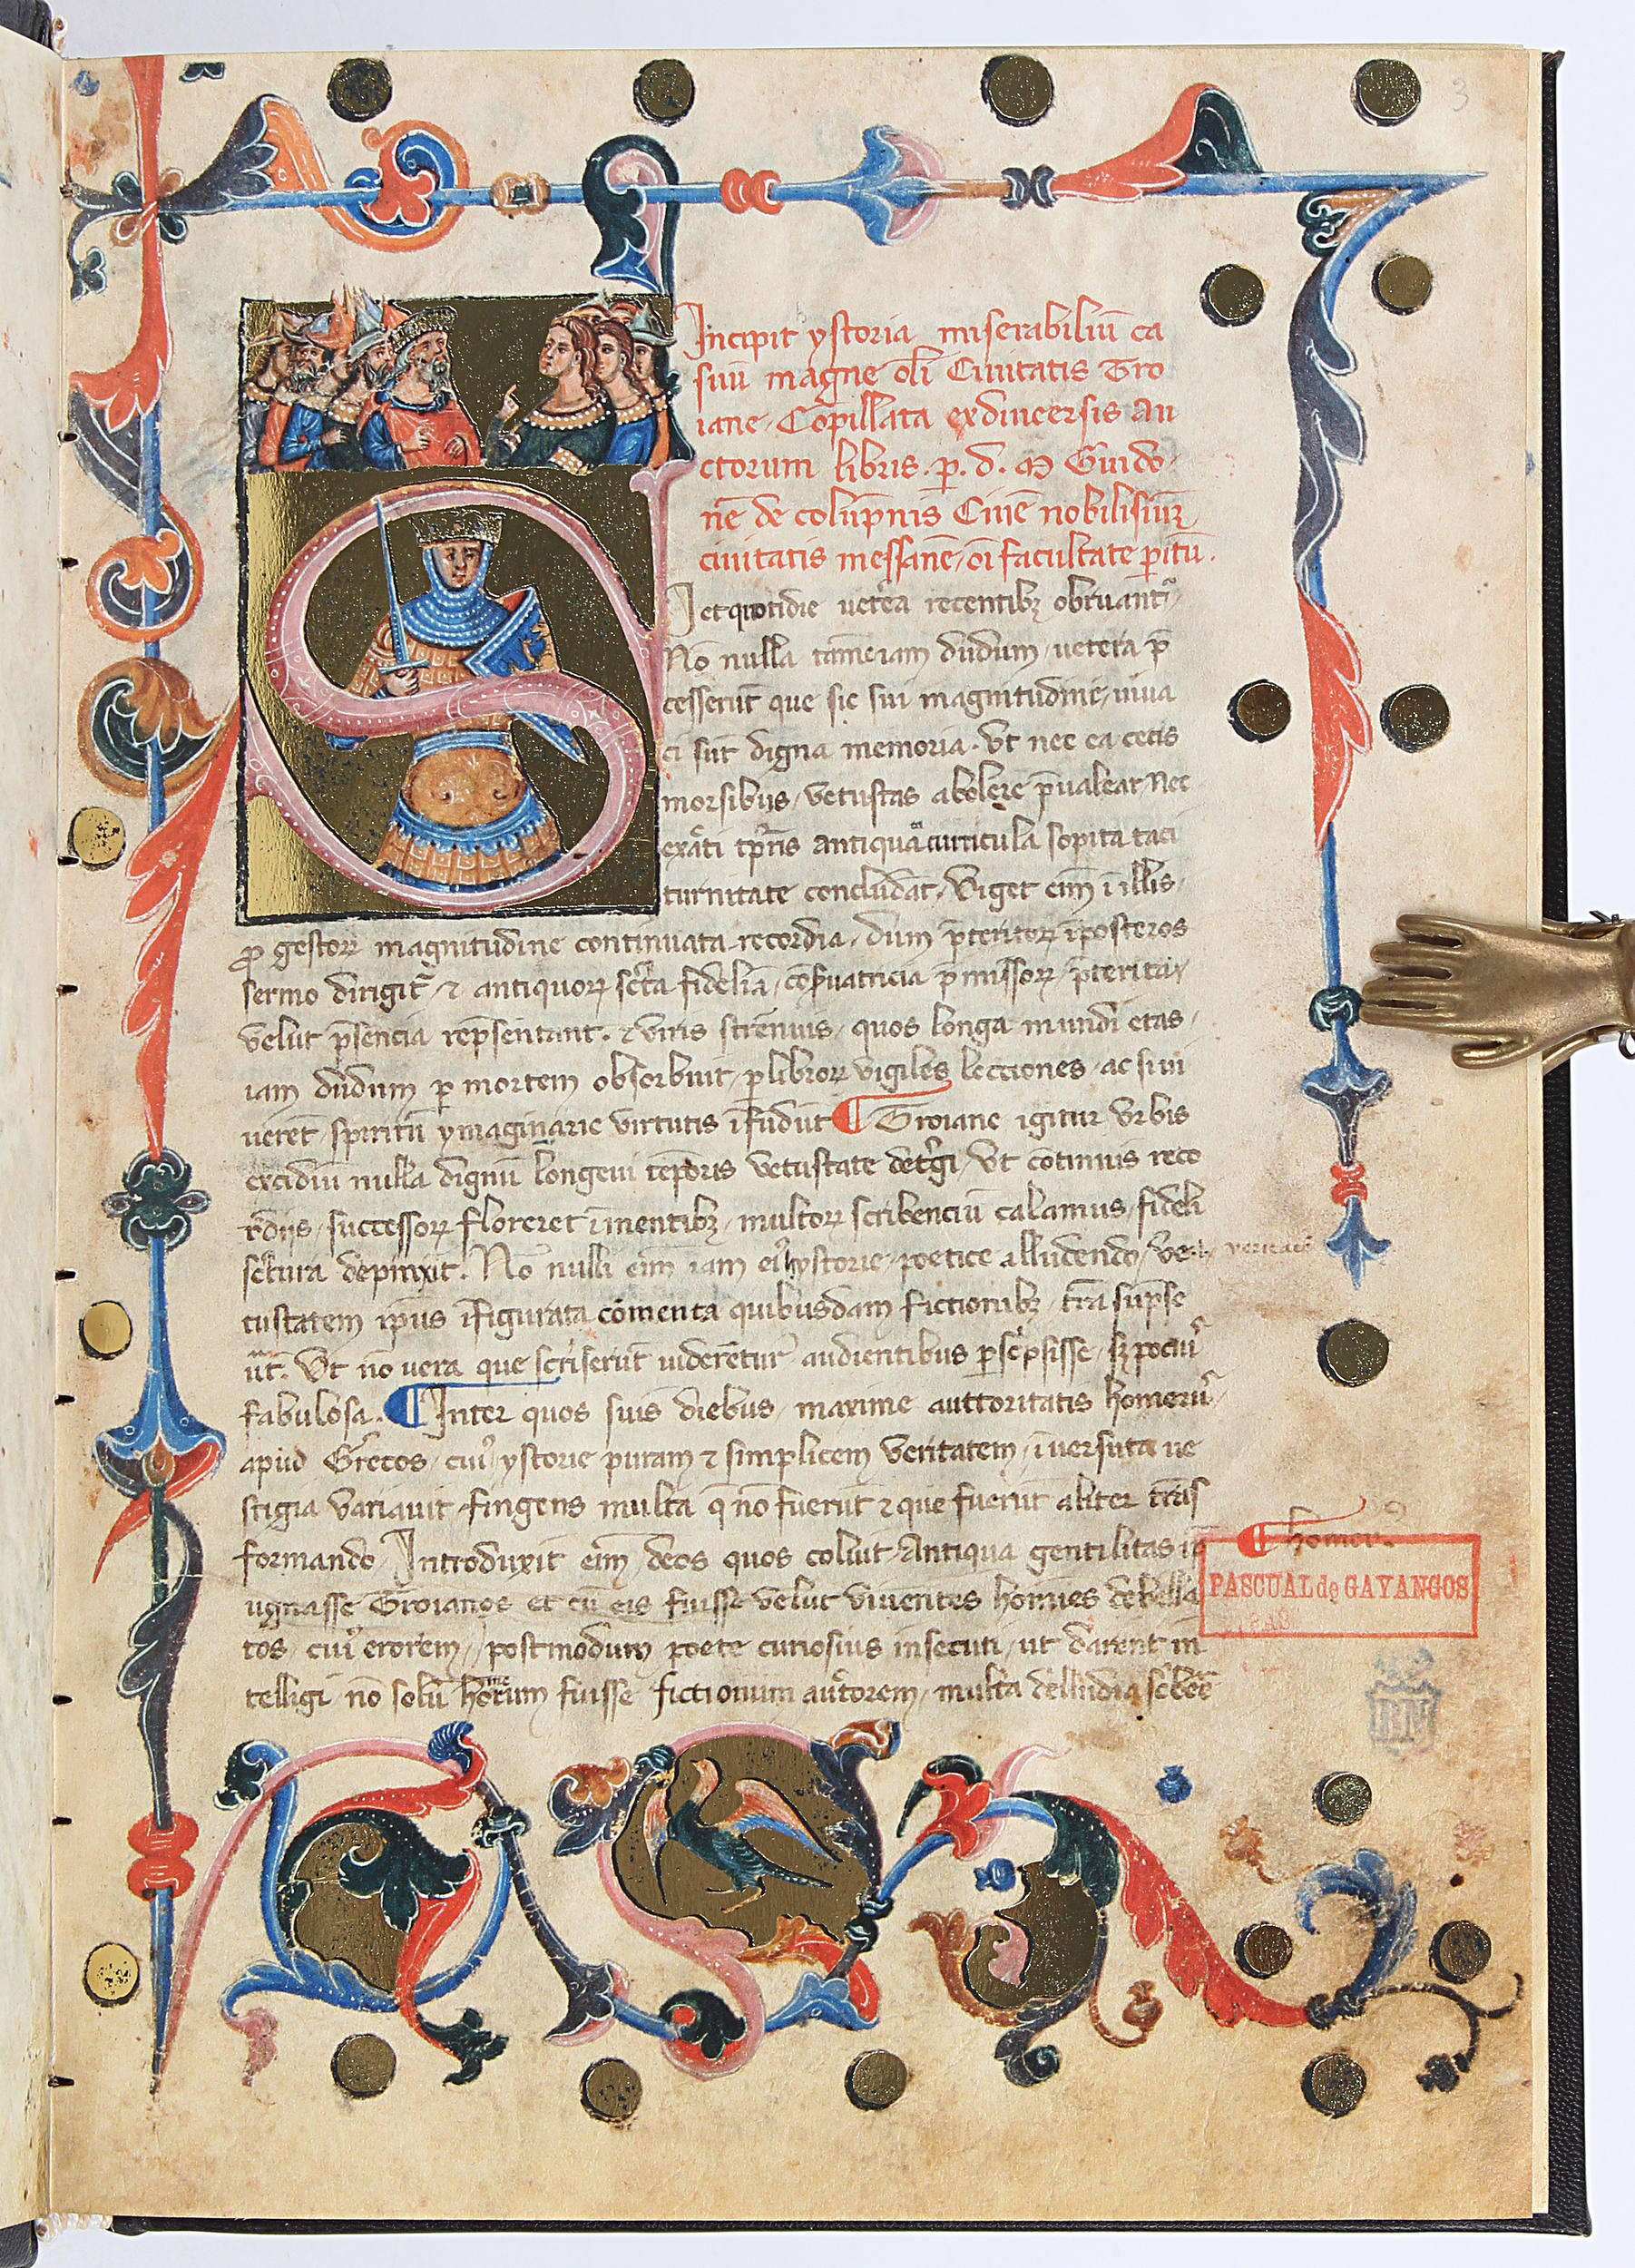 3
Incipit ystoria miserabiliū ca
suū magne oli Ciuitatis Tro
iane. Cōpillata ex diuersis au
ctorum libris. p. d. M Guido
nē de colūpnis Ciuē nobilisiūꝝ
ciuitatis messanē, oī facultate pitū.
et quotidie uetera recentibꝫ obruant᷑
Nō nulla tamē iam dudum uetera p̄
cesserūt que sic sui magnitudine, uiua
ci sūt digna memoria. Vt nec ea cecis
morsibus, vetustas abolere p̄ualeat, Nec
exāti tp̄ris antiqua curricula sopita taci
turnitate concludāt, Viget eni᷑ ī illis,
ꝓ gestorꝝ magnitudine continuata recordia, dum p̄teritorꝝ ī posteros
sermo dirigit᷑, ⁊ antiquorꝝ sc̄pta fidelia, cōseruatricia p̄missorꝝ, p̄terita
velut p̄sencia rep̄sentant. ⁊ viris strenuis, quos longa mundi etas,
iam dudum p mortem obsorbuit, p librorꝝ vigiles lecciones, ac si ui
uerēt, spiritū ymaginarie virtutis īfudūt ¶ Troiane igitur Vrbis
excidiū nulla dignū longeui tēporis vetustate det᷑gi, Vt cōtinuis reco
rdiis, successorꝝ floreret ī mentibꝫ, multorꝝ scribenciū calamus, fideli
sc̄ptura depinxit. Nō nulli eni᷑ iam ei᷒ hystorie, poetice alludendo, ve
tustatem ip̄ius īfigurata cōmenta quibusdam fictionibꝫ, trāsūpse
ūt. Vt nō uera que scriserūt uiderētur audientibus pscpsisse, sꝫ pociu᷒
fabulosa. ¶ Inter quos suis diebus, maxime auttoritatis homeru᷒
apud Grecos, cui᷒ ystorie puram ⁊ simplicem veritatem, ī uersuta ue
stigia variauit, fingens multa q̄ nō fuerūt ⁊ que fuerūt aliter trās
formando. Introduxit eni᷑ deos quos coluit Antiqua gentilitas ī
ugnasse Troianos et cū eis fuisse velut viuentes homīes debella
¶ homer᷒
PASCUAL de GAYANGOS
tos, cui᷒ erorem, postmodum poete curiosius insecuti, ut darent in
telligi nō solū homerum fuisse fictionum autorem, multa
BN